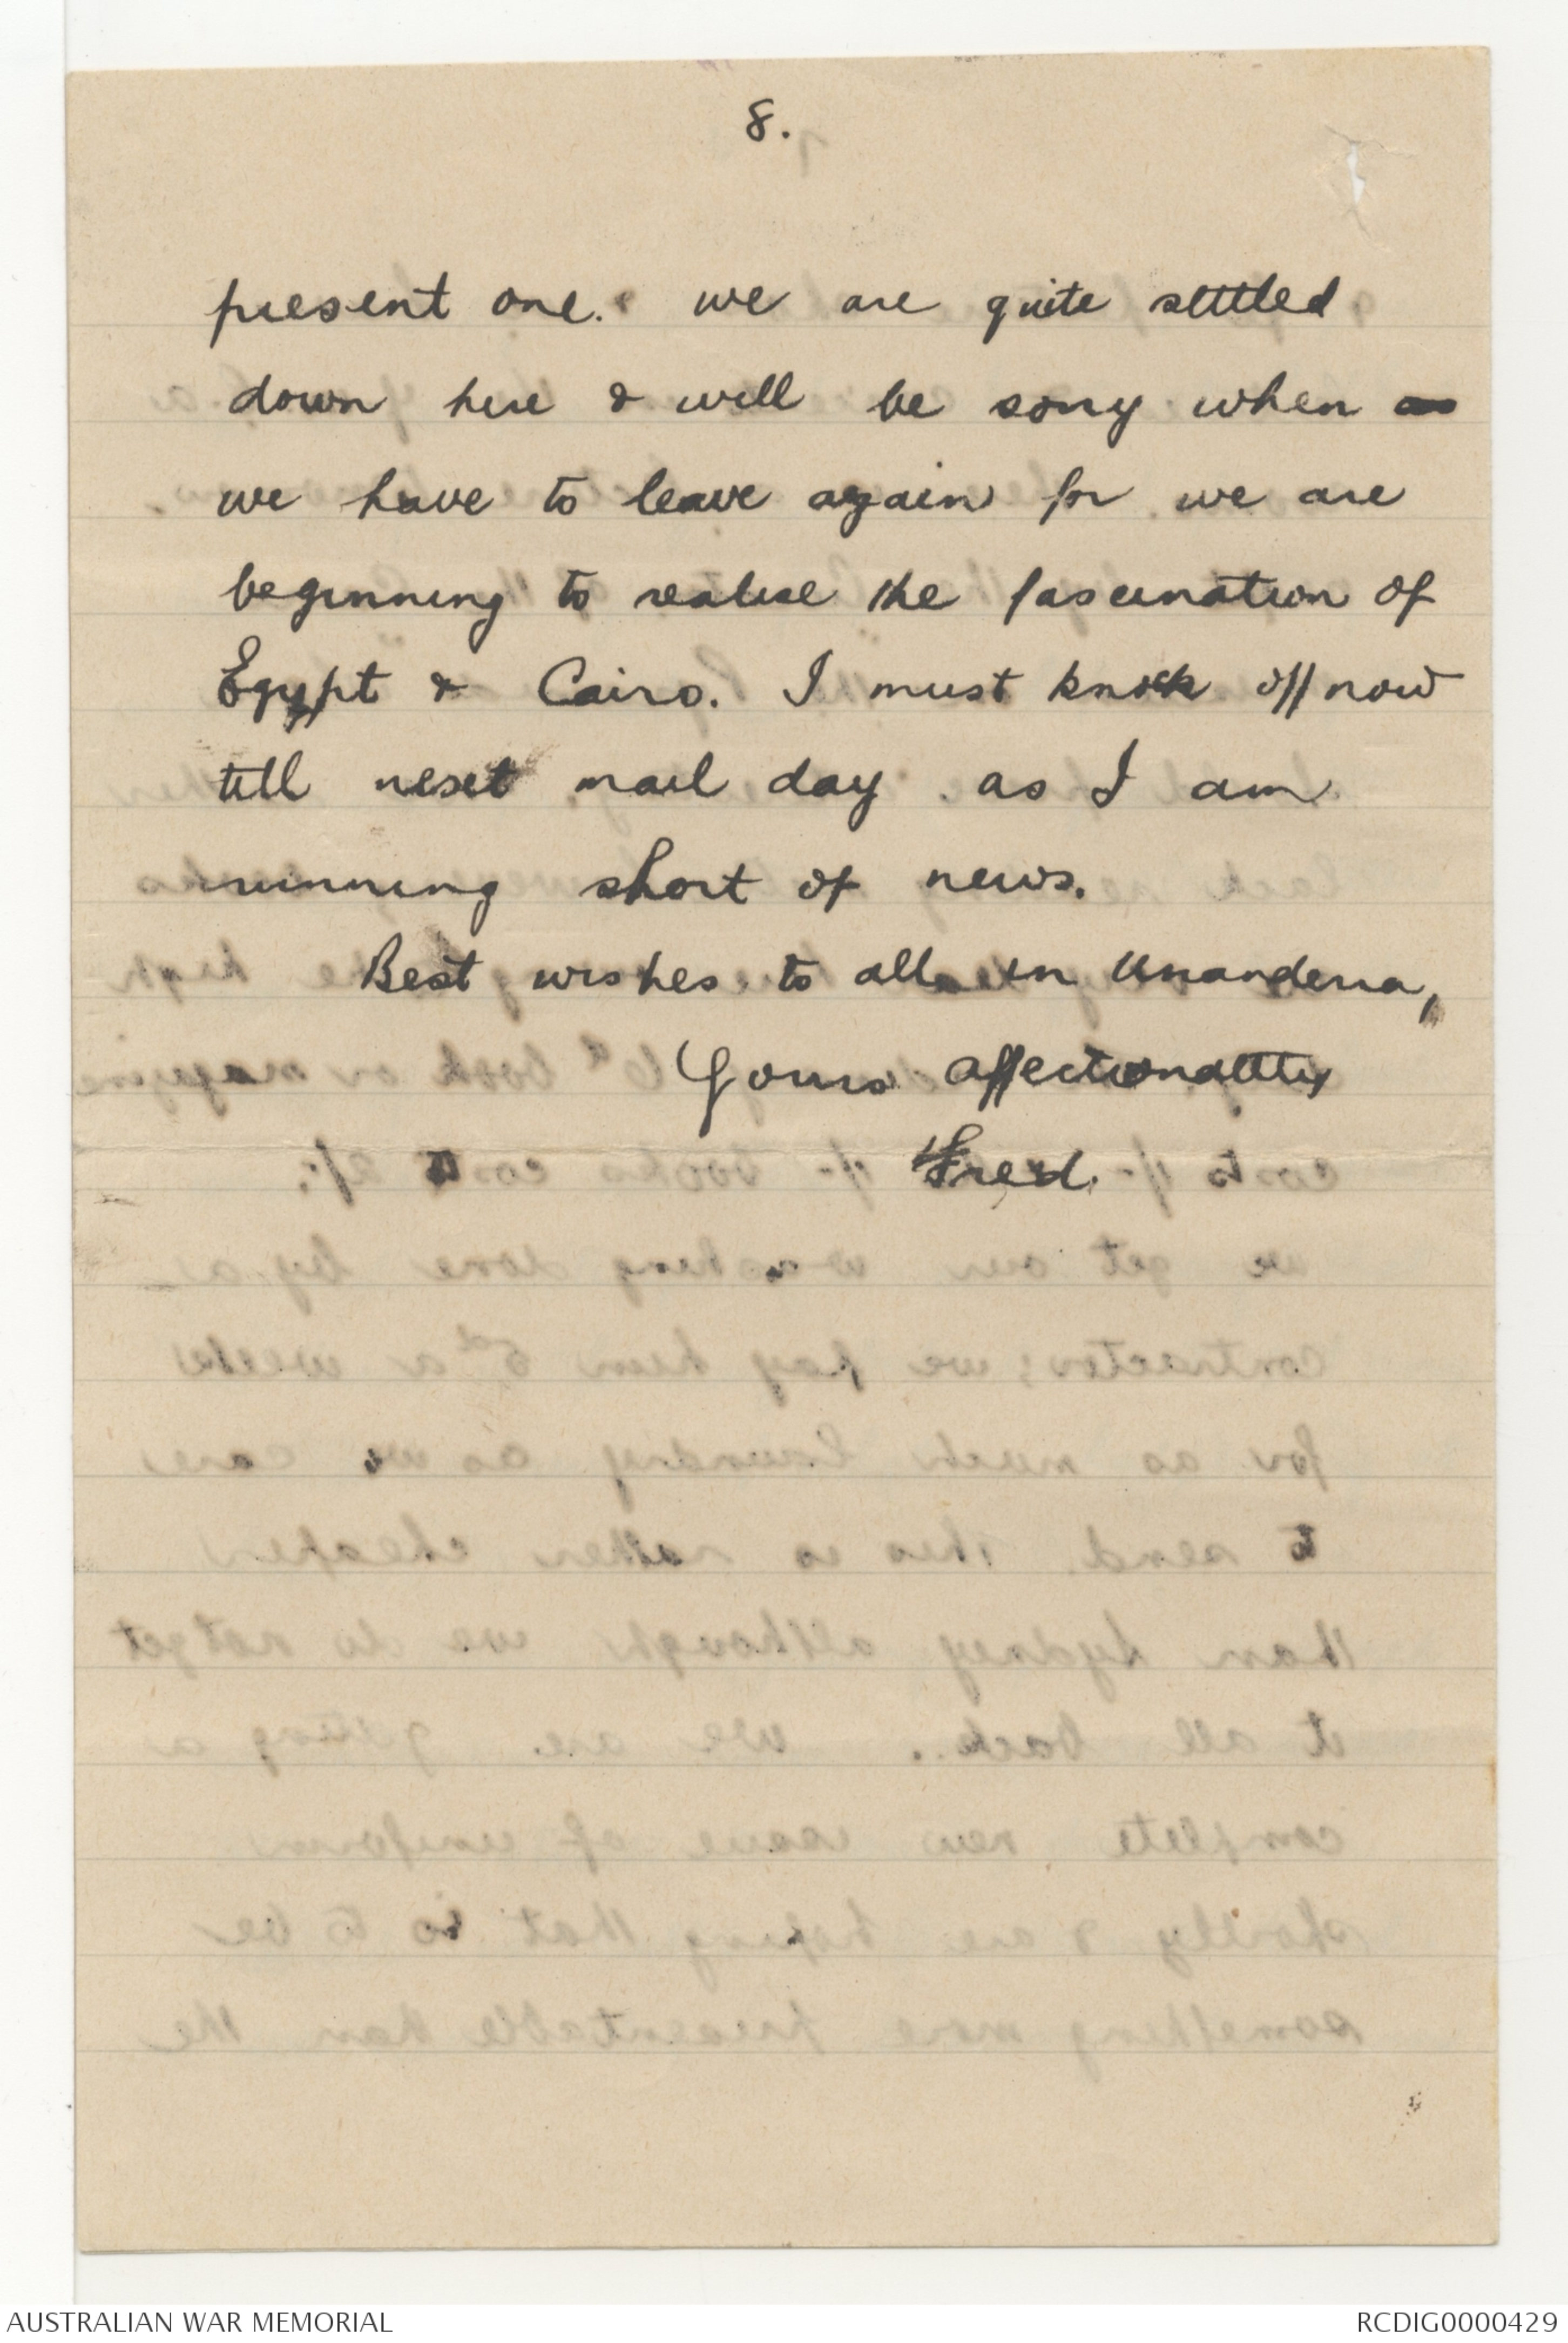 8.
present one. we are quite settled
down here & will be sorry when
we have to leave again for we are
beginning to realise the fascination of
Egypt & Cairo. I must knock off now
till next mail day as I am
running short of news.
Best wishes to all in Unanderra,
Yours affectionately
Fred.
AUSTRALIAN WAR MEMORIAL
RCDIG0000429